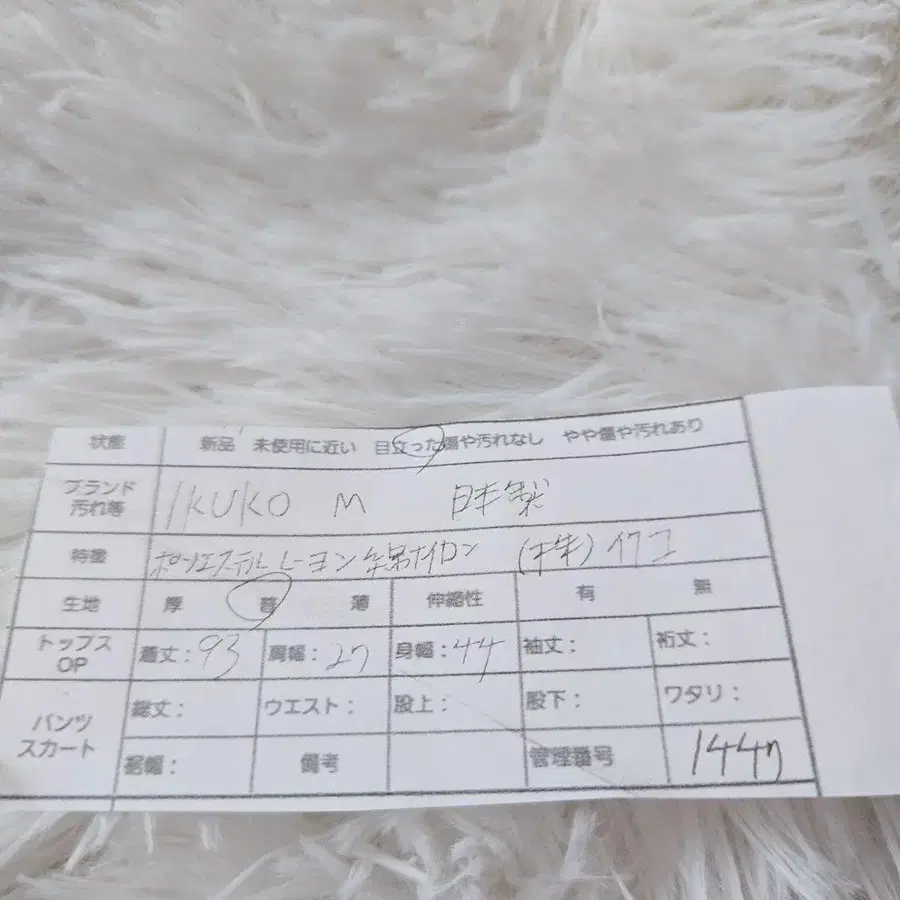 状態 新品 未使用に近い 目立った傷や汚れなし やや傷や汚れあり
ブランド 汚れ等 IKUKO M 日本製
特徴 ポリエステル レーヨン 綿 ナイロン (株)イクコ
生地 厚 普 薄 伸縮性 有 無
トップス OP 着丈:93 肩幅:27 身幅:44 袖丈: 裄丈:
パンツ スカート 総丈: ウエスト: 股上: 股下: ワタリ:
裾幅: 備考 管理番号 1447